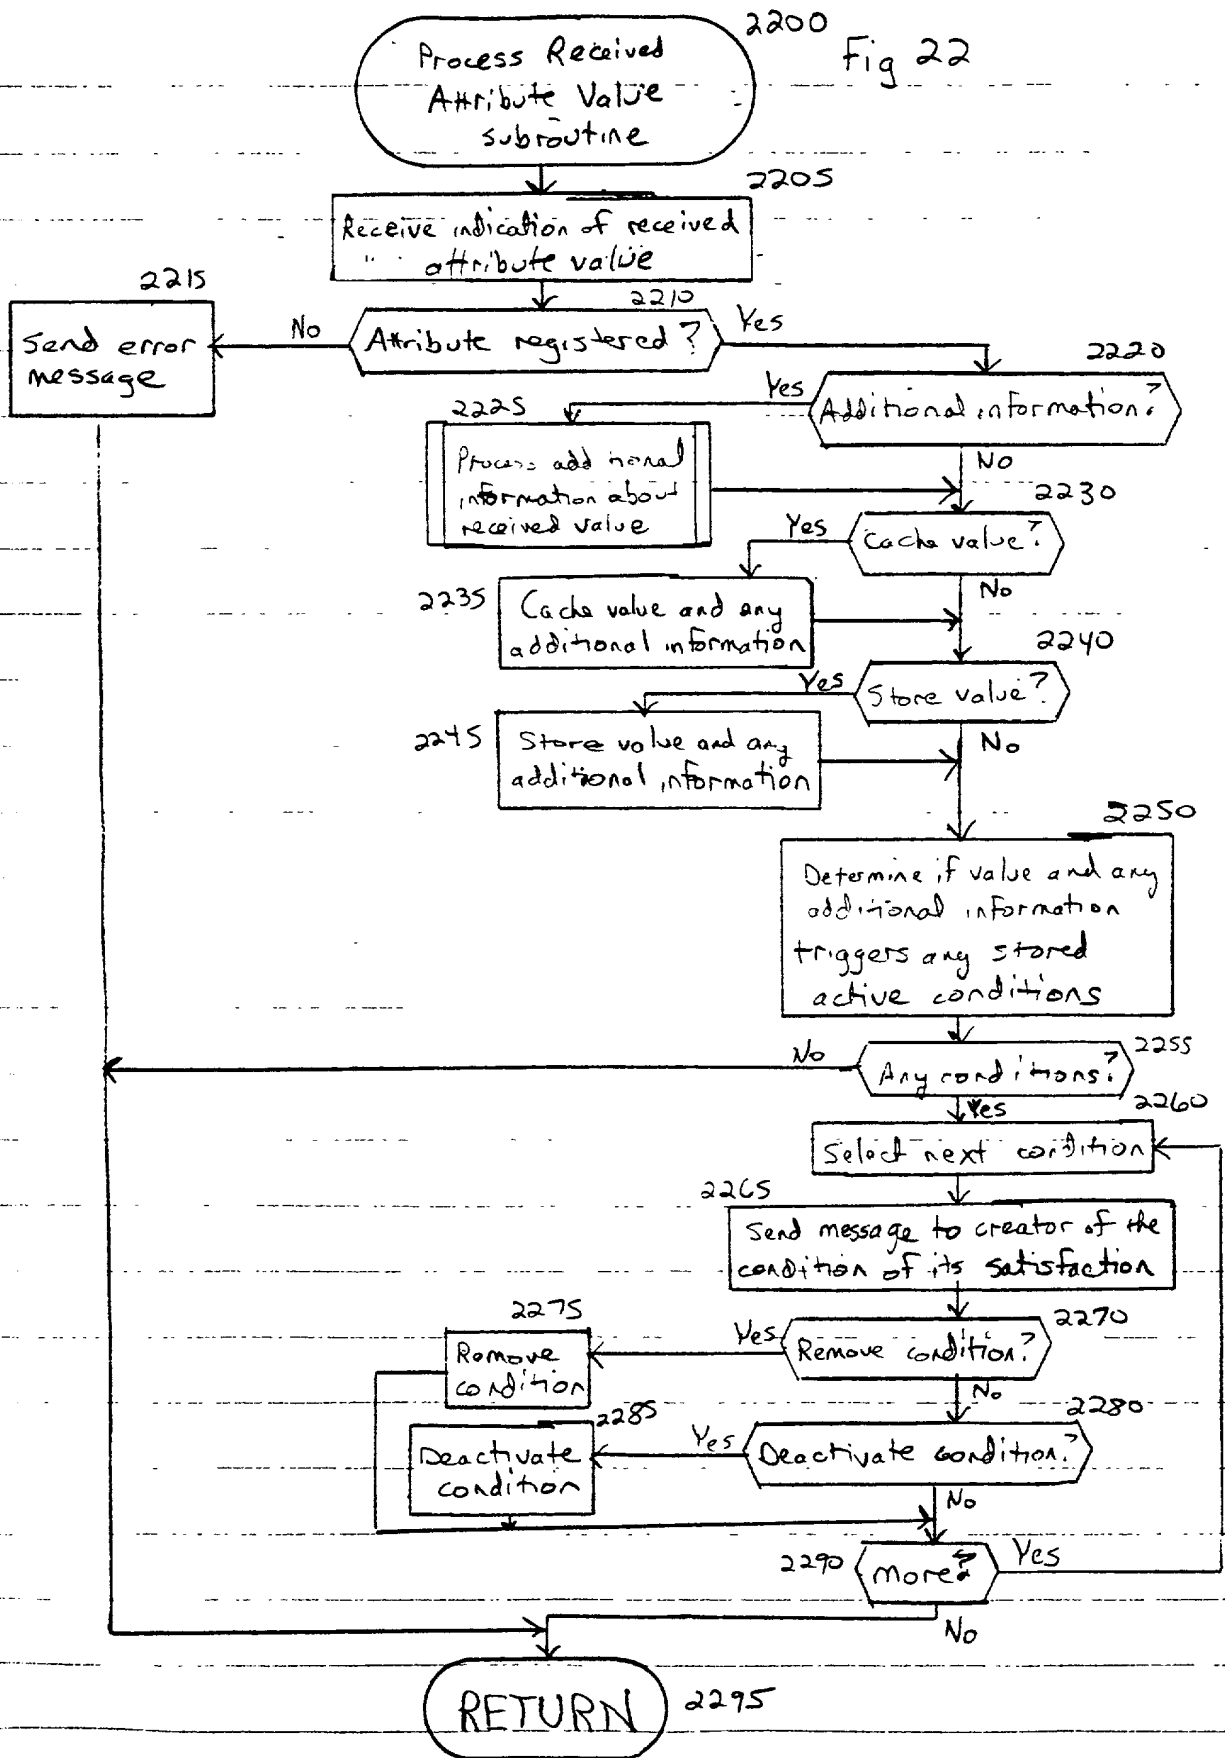 2200
Fig 22
Process Received
Attribute Value
subroutine
2205
Receive indication of received
attribute value
2210
2215
Send error
message
No
Attribute registered?
Yes
2220
Yes
Additional information?
2225
Process additional
information about
received value
No
2230
Yes
Cache value?
2235
Cache value and any
additional information
No
2240
Yes
Store value?
2245
Store value and any
additional information
No
2250
Determine if value and any
additional information
triggers any stored
active conditions
No
Any conditions?
2255
Yes
2260
Select next condition
2265
Send message to creator of the
condition of its satisfaction
2275
2270
Remove
condition
Yes
Remove condition?
No
2285
2280
Deactivate
condition
Yes
Deactivate condition?
No
2290
More?
Yes
No
RETURN
2295